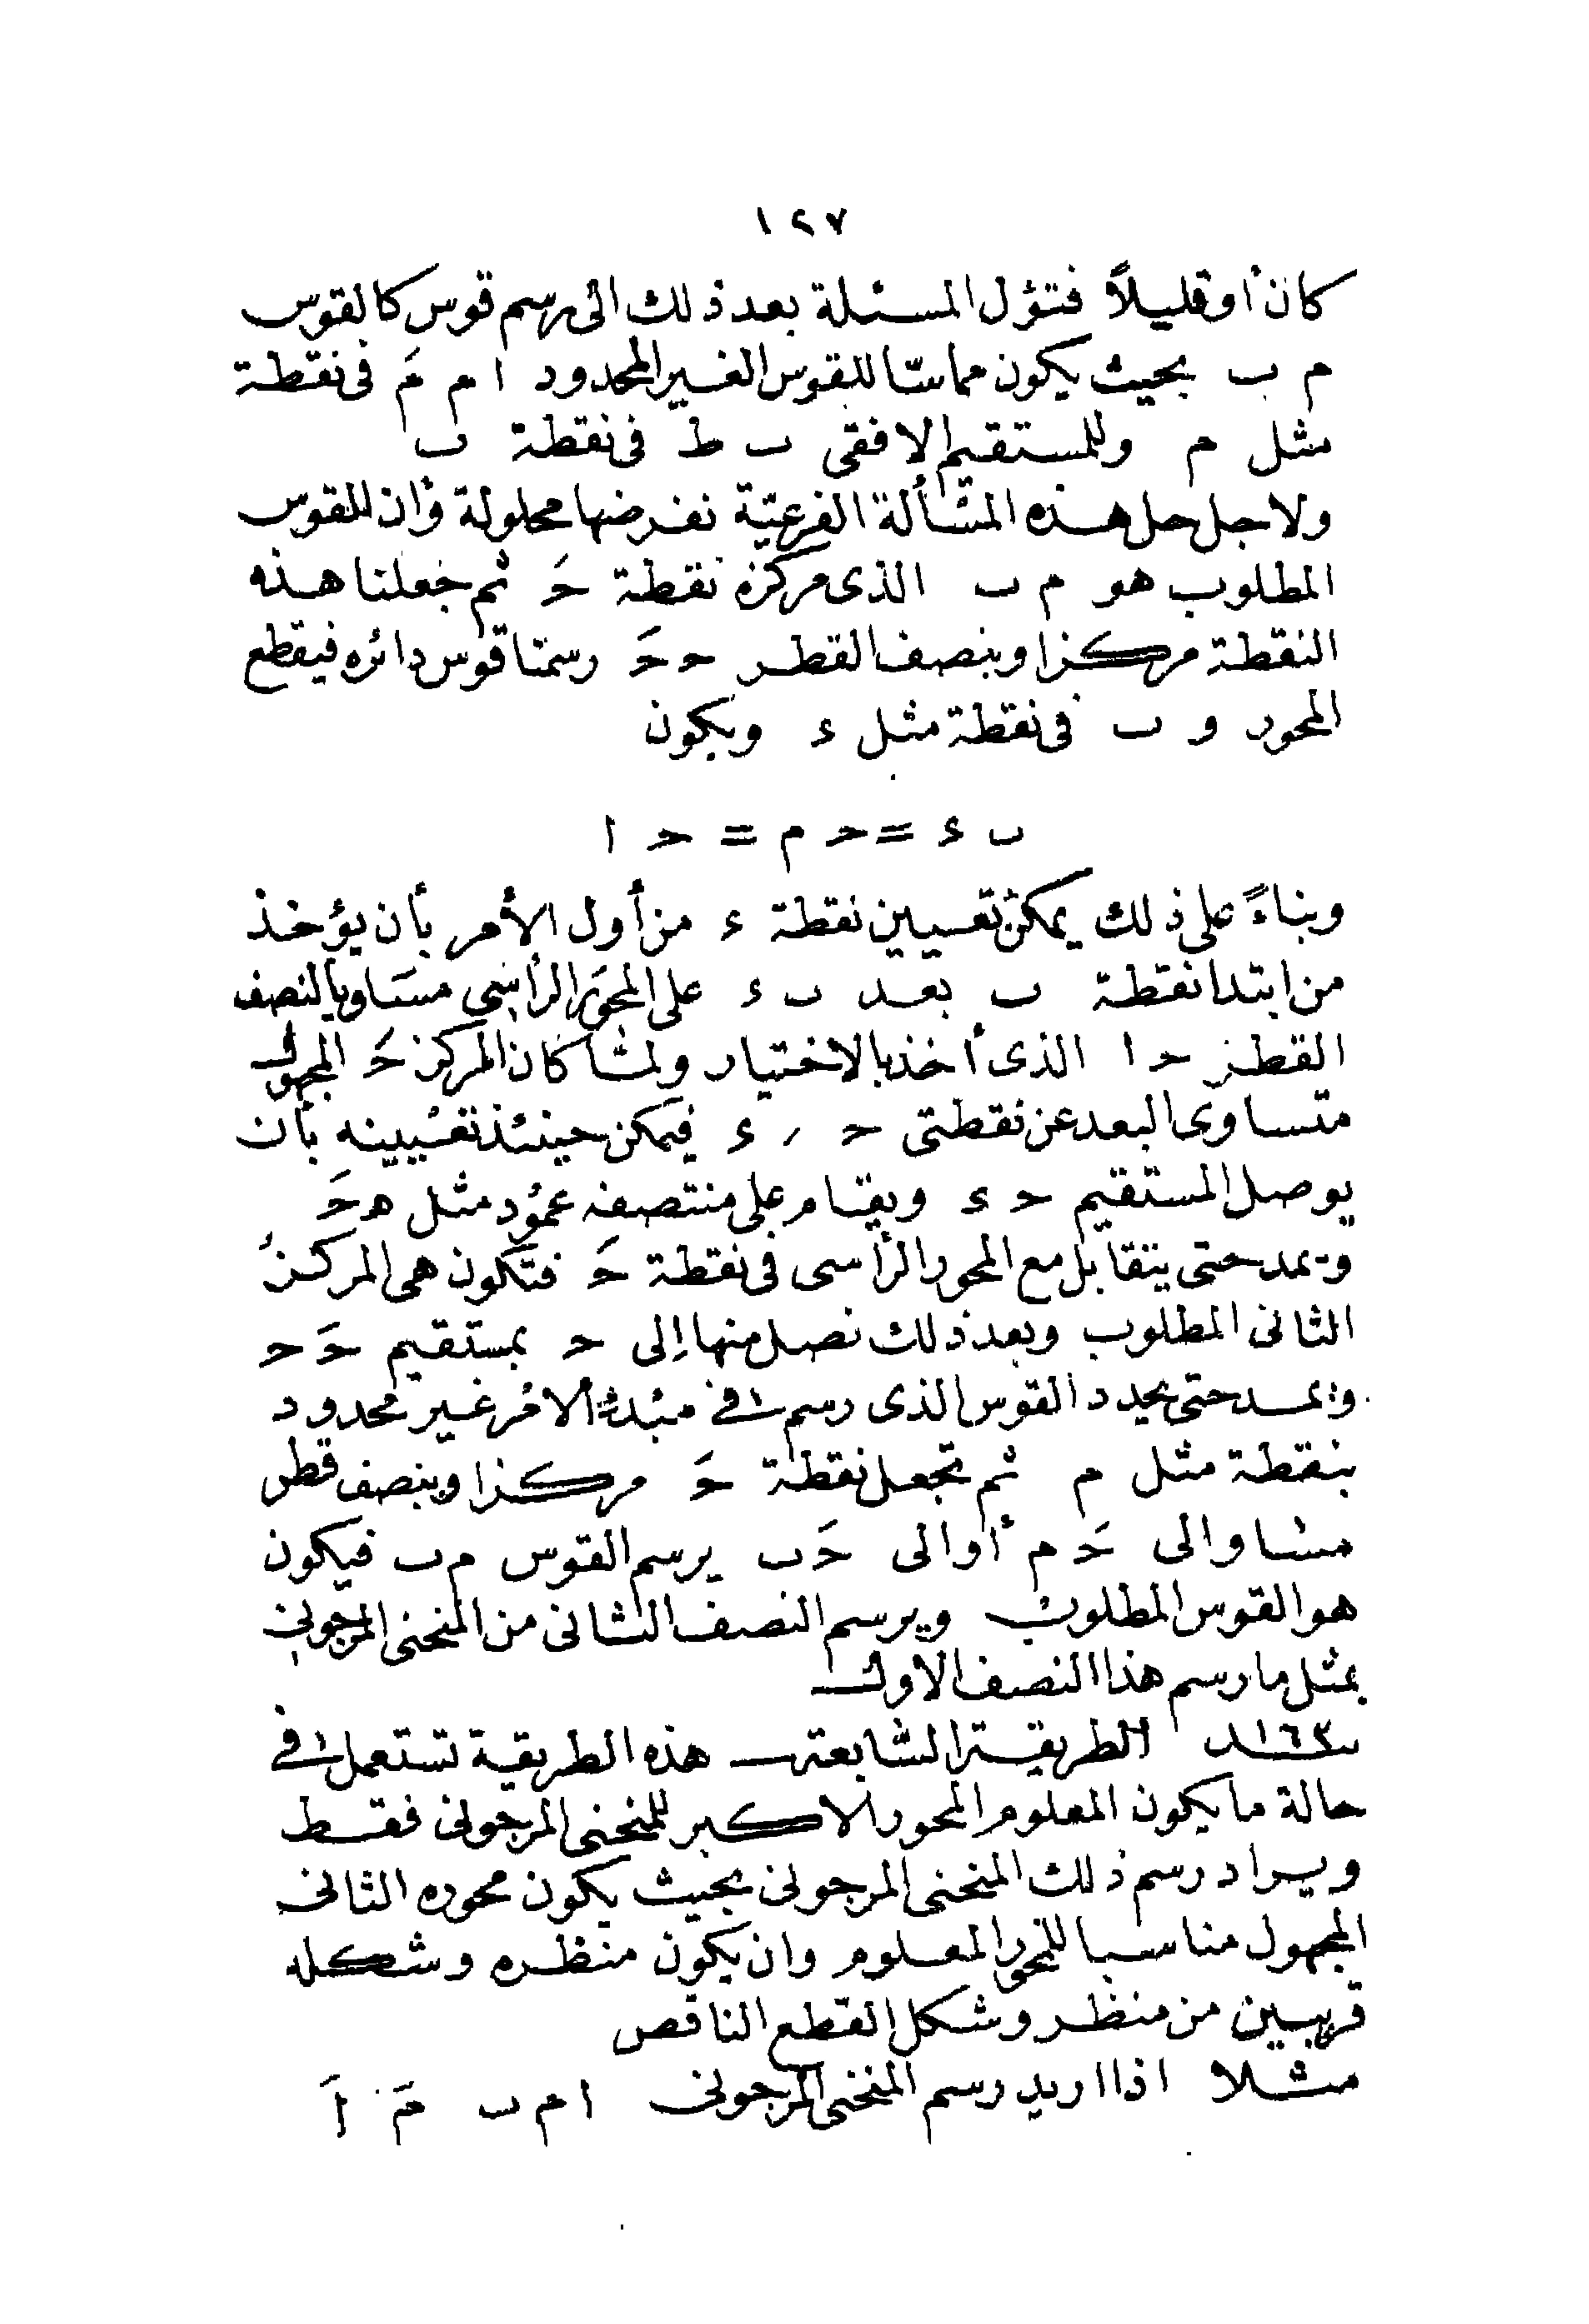 ١٢٧
كان أو قليلاً فتؤل المسئلة بعد ذلك الى رسم قوس كالقوس
م ب بحيث يكون مماسّا للقوس الغير المحدود ا م مَ فى نقطة
مثل م وللمستقيم الافقى ب ط فى نقطة ب
ولاجل حل هذه المسألة الفرعيّة نفرضها محلولة وان القوس
المطلوب هو م ب الذى مركزه نقطة حَ ثم جعلنا هذه
النقطة مركزا وبنصف القطر ح حَ رسمنا قوس دائره فيقطع
المحور و ب فى نقطة مثل ء ويكون
ب ء = ح م = ح ا
وبناءً على ذلك يمكن تعيين نقطة ء من أول الأمر بأن يؤخذ
من ابتدا نقطة ب بعد ب ء على المحور الرأسى مساويا لنصف
القطر ح ا الذى أخذ بالاختيار ولما كان المركز حَ المجهول
متساوى البعد عن نقطتى ح ر ء فيمكن حينئذ تعيينه بان
يوصل المستقيم ح ء ويقام على منتصفه عمود مثل ه حَ
ويمد حتى يتقابل مع المحور الرأسى فى نقطة حَ فتكون هى المركز
الثانى المطلوب وبعد ذلك نصل منها إلى ح بمستقيم حَ ح
ويمد حتى يحدد القوس الذى رسم فى مبدأ الامر غير محدود
بنقطة مثل م ثم تجعل نقطة حَ مركزا وبنصف قطر
مساو الى حَ م أوالى حَ ب يرسم القوس م ب فيكون
هو القوس المطلوب ويرسم النصف الثانى من المنحنى المرجونى
بمثل ما رسم هذا النصف الاول
سـ١٦٣ـد الطريقة السابعة هذه الطريقة تستعمل فى
حالة ما يكون المعلوم المحور الاكبر للمنحنى المرجونى فقط
ويراد رسم ذلك المنحنى المرجونى بحيث يكون محوره الثانى
المجهول مناسبا للمحور المعلوم وان يكون منظره وشكله
قريبين من منظر وشكل القطع الناقص
مثلا اذا اريد رسم المنحنى المرجونى ا م ب مَ اَ